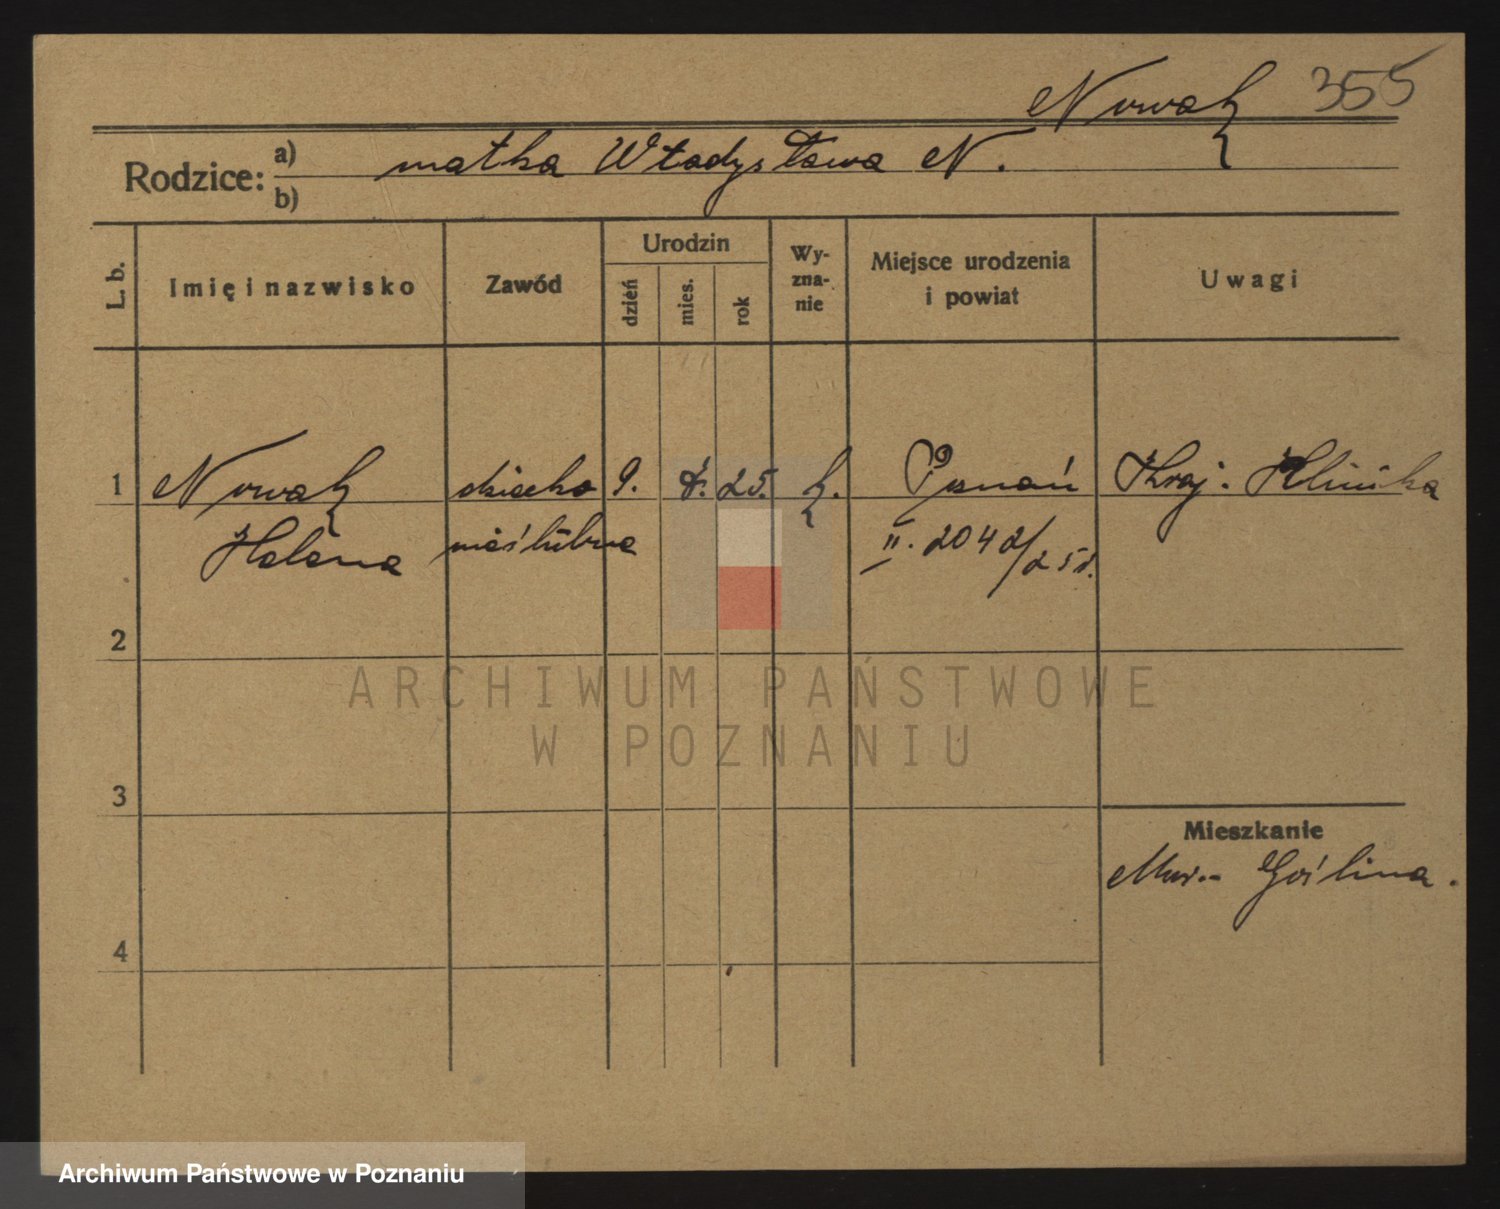 Nowak 355
Rodzice: a) matka Władysława N.
b)
L. b. Imię i nazwisko Zawód Urodzin dzień mies. rok Wyznanie Miejsce urodzenia i powiat Uwagi
1 Nowak dziecko 9. 25. k. Poznań Kraj. Klinika
Helena nieślubne II. 2042/25
2
ARCHIWUM PAŃSTWOWE
W POZNANIU
3
Mieszkanie
Mur.- Goślina.
4
Archiwum Państwowe w Poznaniu